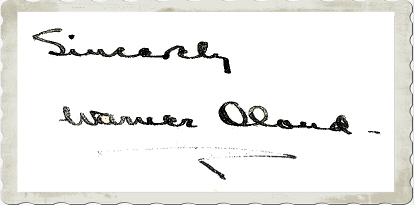 Sincerely
Warner Oland -